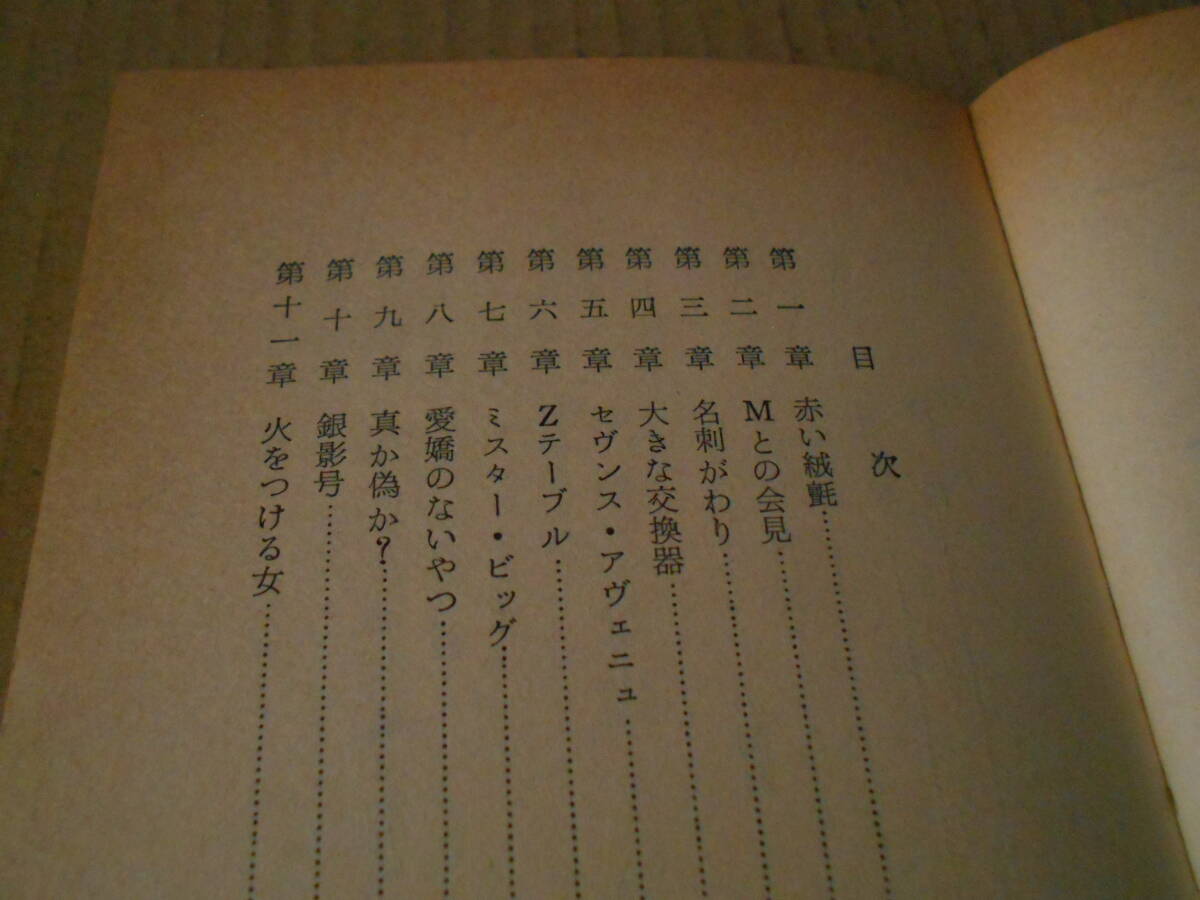 目次
第一章 赤い絨毯……………………
第二章 Mとの会見……………………
第三章 名刺がわり……………………
第四章 大きな交換器……………………
第五章 セヴンス・アヴェニュ……………………
第六章 Zテーブル……………………
第七章 ミスター・ビッグ……………………
第八章 愛嬌のないやつ……………………
第九章 真か偽か?……………………
第十章 銀影号……………………
第十一章 火をつける女……………………